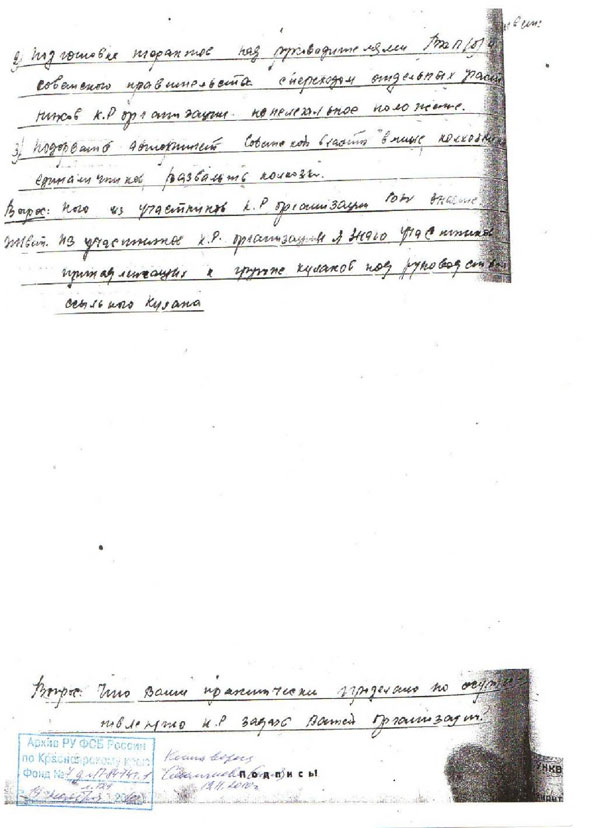 2) Подготовка терактов над руководителями ВКП(б) и
советского правительства с переходом отдельных участ
ников к.р организации на нелегальное положение.
3) Подорвать авторитет советской власти в лице колхозников
единоличников, развалить колхозы.
Вопрос: Кого из участников к.р организации Вы знаете.
Ответ. Из участников к.р. организации я знаю участников
принадлежащих к группе кулаков под руководством
ссыльного кулака
Вопрос: Что Вами практически проделано по осущес
твлению к.р задач Вашей организации?
Архив РУ ФСБ России
по Красноярскому краю
Фонд №
Подпись!
19.11.2010г
НКВ